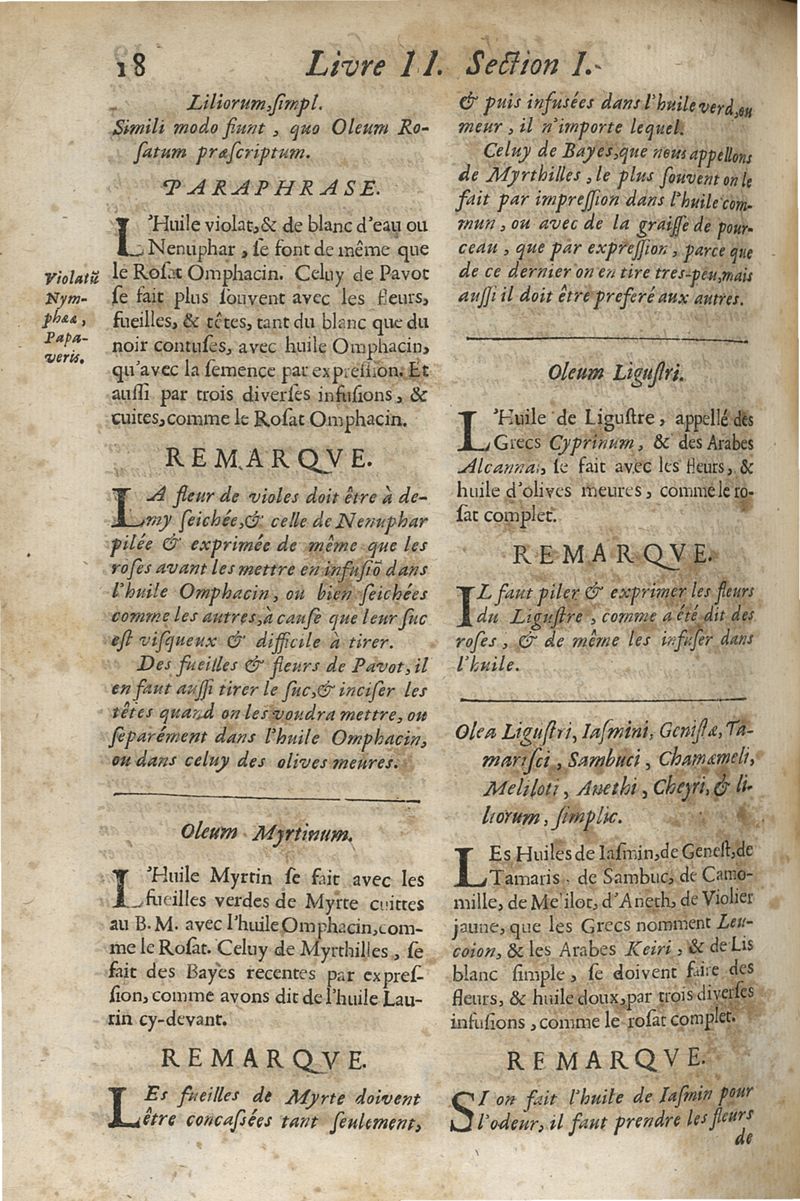 18 Livre II. Section I.
Liliorum, ſimpl.
Simili modo fiunt, quo Oleum Ro-
ſatum præſcriptum.
PARAPHRASE.
L'Huile violat, & de blanc d'eau ou
Nenuphar, ſe font de même que
le Roſat Omphacin. Celuy de Pavot
ſe fait plus ſouvent avec les fleurs,
fueilles, & têtes, tant du blanc que du
noir contuſes, avec huile Omphacin,
qu'avec la ſemence par expreſſion. Et
auſſi par trois diverſes infuſions, &
cuites, comme le Roſat Omphacin.
Violatū
Nym-
phææ,
Papa-
veris.
REMARQVE.
LA fleur de violes doit être à de-
my ſeichée, & celle de Nenuphar
pilée & exprimée de même que les
roſes avant les mettre en infuſiō dans
l'huile Omphacin, ou bien ſeichées
comme les autres, à cauſe que leur ſuc
eſt viſqueux & difficile à tirer.
Des fueilles & fleurs de Pavot, il
en faut auſſi tirer le ſuc, & inciſer les
têtes quand on les voudra mettre, ou
ſeparément dans l'huile Omphacin,
ou dans celuy des olives meures.
Oleum Myrtinum.
L'Huile Myrtin ſe fait avec les
fueilles verdes de Myrte cuittes
au B. M. avec l'huile Omphacin, com-
me le Roſat. Celuy de Myrthilles, ſe
fait des Bayes recentes par expreſ-
ſion, comme avons dit de l'huile Lau-
rin cy-devant.
REMARQVE.
LEs fueilles de Myrte doivent
être concaſſées tant ſeulement,
& puis infusées dans l'huile verd, ou
meur, il n'importe lequel.
Celuy de Bayes, que nous appellons
de Myrthilles, le plus ſouvent on le
fait par impreſſion dans l'huile com-
mun, ou avec de la graiſſe de pour-
ceau, que par expreſſion, parce que
de ce dernier on en tire tres-peu, mais
auſſi il doit être preferé aux autres.
Oleum Liguſtri.
L'Huile de Liguſtre, appellé des
Grecs Cyprinum, & des Arabes
Alcanna, ſe fait avec les fleurs, &
huile d'olives meures, comme le ro-
ſat complet.
REMARQVE.
IL faut piler & exprimer les fleurs
du Liguſtre, comme a été dit des
roſes, & de même les infuſer dans
l'huile.
Olea Liguſtri, Iaſmini, Geniſtæ, Ta-
mariſci, Sambuci, Chamæmeli,
Meliloti, Anethi, Cheyri, & li-
liorum, ſimplic.
LEs Huiles de Iaſmin, de Geneſt, de
Tamaris, de Sambuc, de Camo-
mille, de Melilot, d'Aneth, de Violier
jaune, que les Grecs nomment Leu-
coion, & les Arabes Keiri, & de Lis
blanc ſimple, ſe doivent faire des
fleurs, & huile doux, par trois diverſes
infuſions, comme le roſat complet.
REMARQVE.
SI on fait l'huile de Iaſmin pour
l'odeur, il faut prendre les fleurs
de